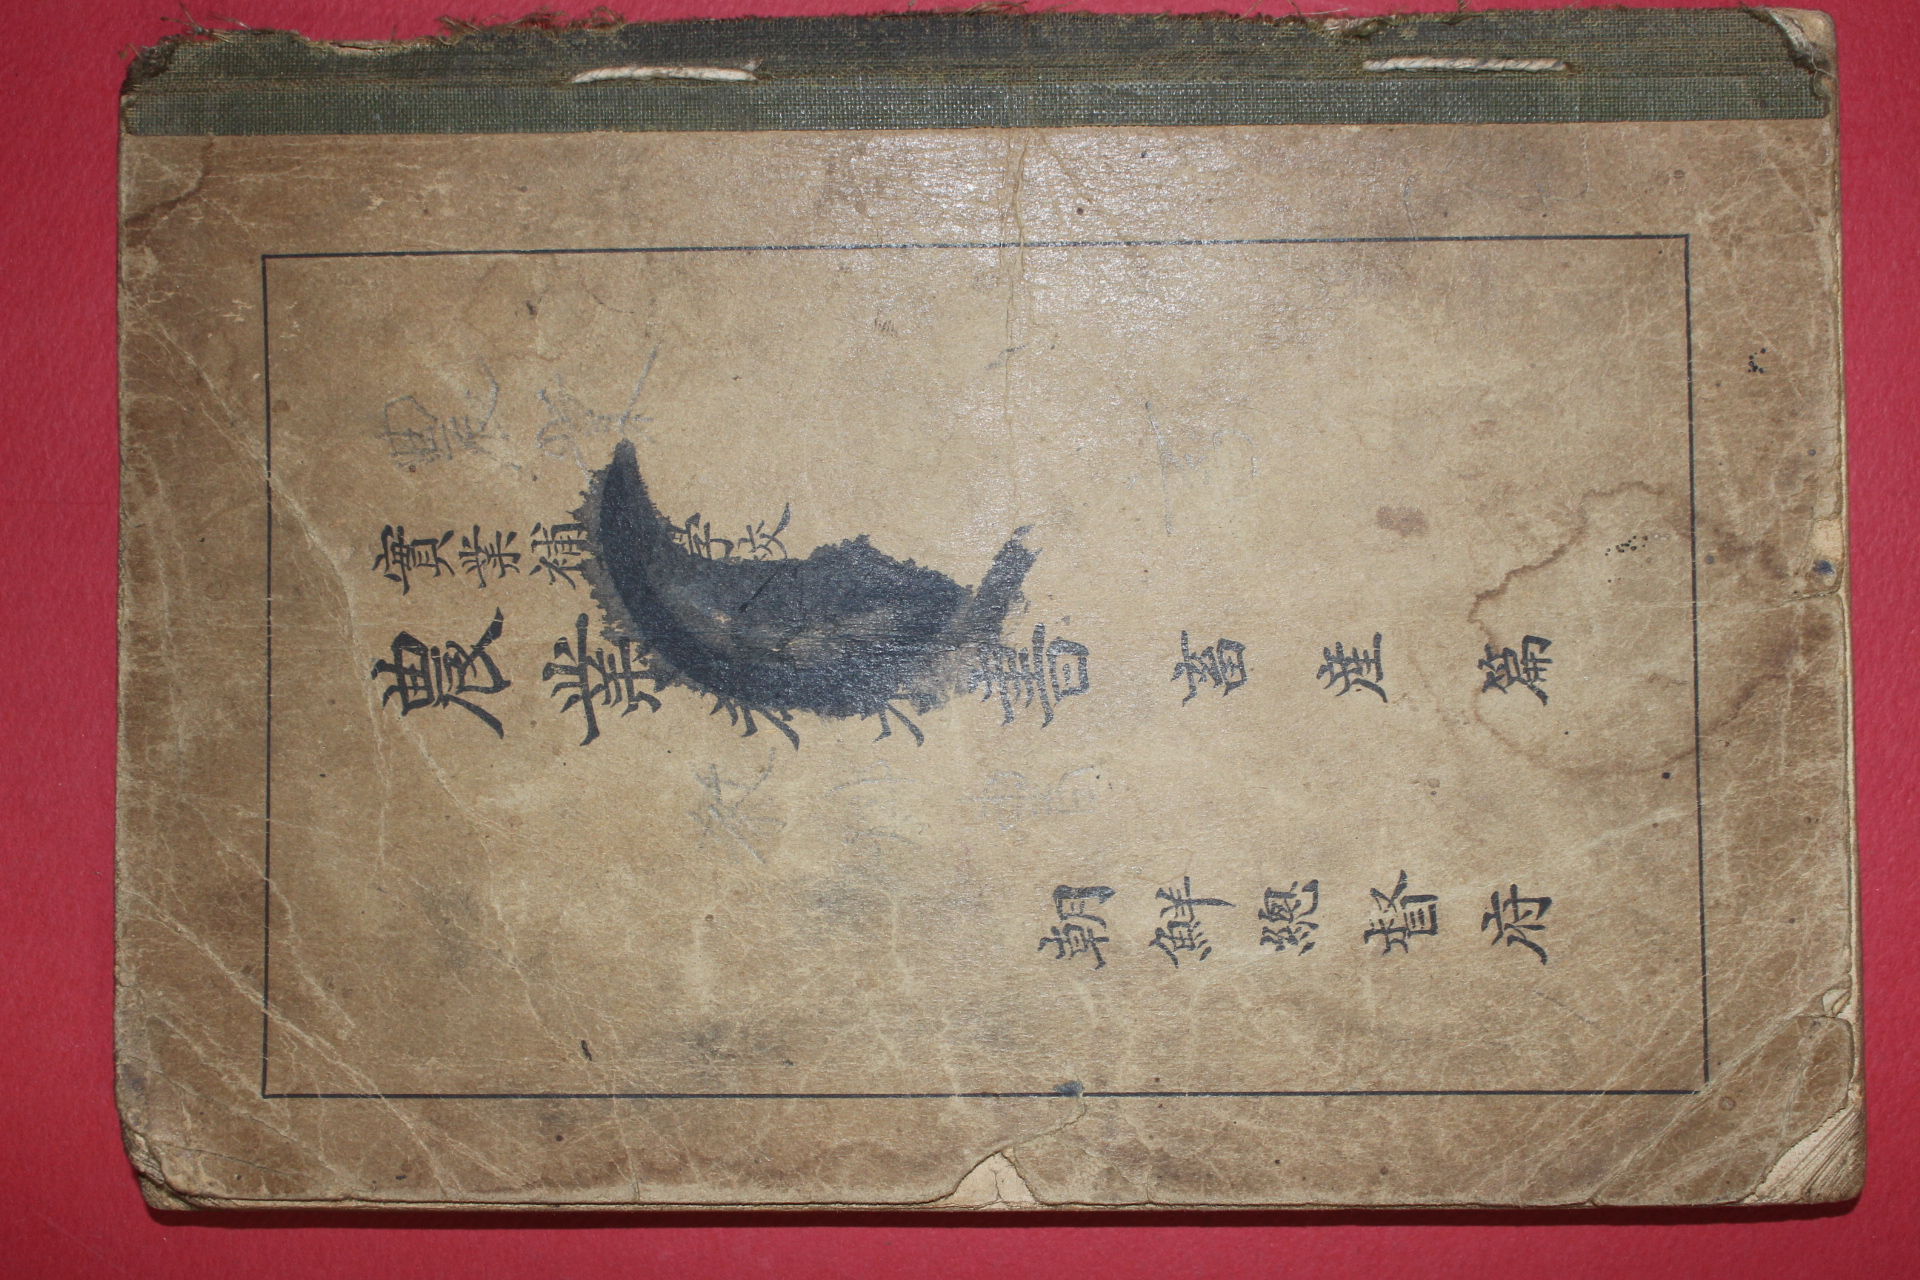 實業補 學校
農業教科書 畜產篇
朝鮮總督府